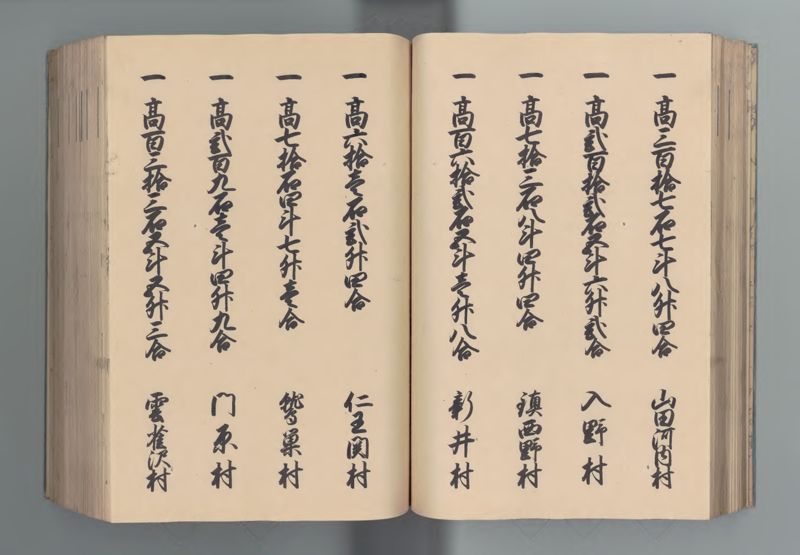 一 高三百拾七石七斗八升四合 山田河内村
一 高弐百拾弐石五斗六升弐合 入野村
一 高七拾三石八斗四升四合 鎮西野村
一 高百六拾弐石五斗壱升八合 新井村
一 高六拾壱石弐升四合 仁王関村
一 高七拾石四斗七升壱合 鷲巣村
一 高弐百九石壱斗四升九合 門原村
一 高百三拾三石五斗五升三合 雲雀沢村